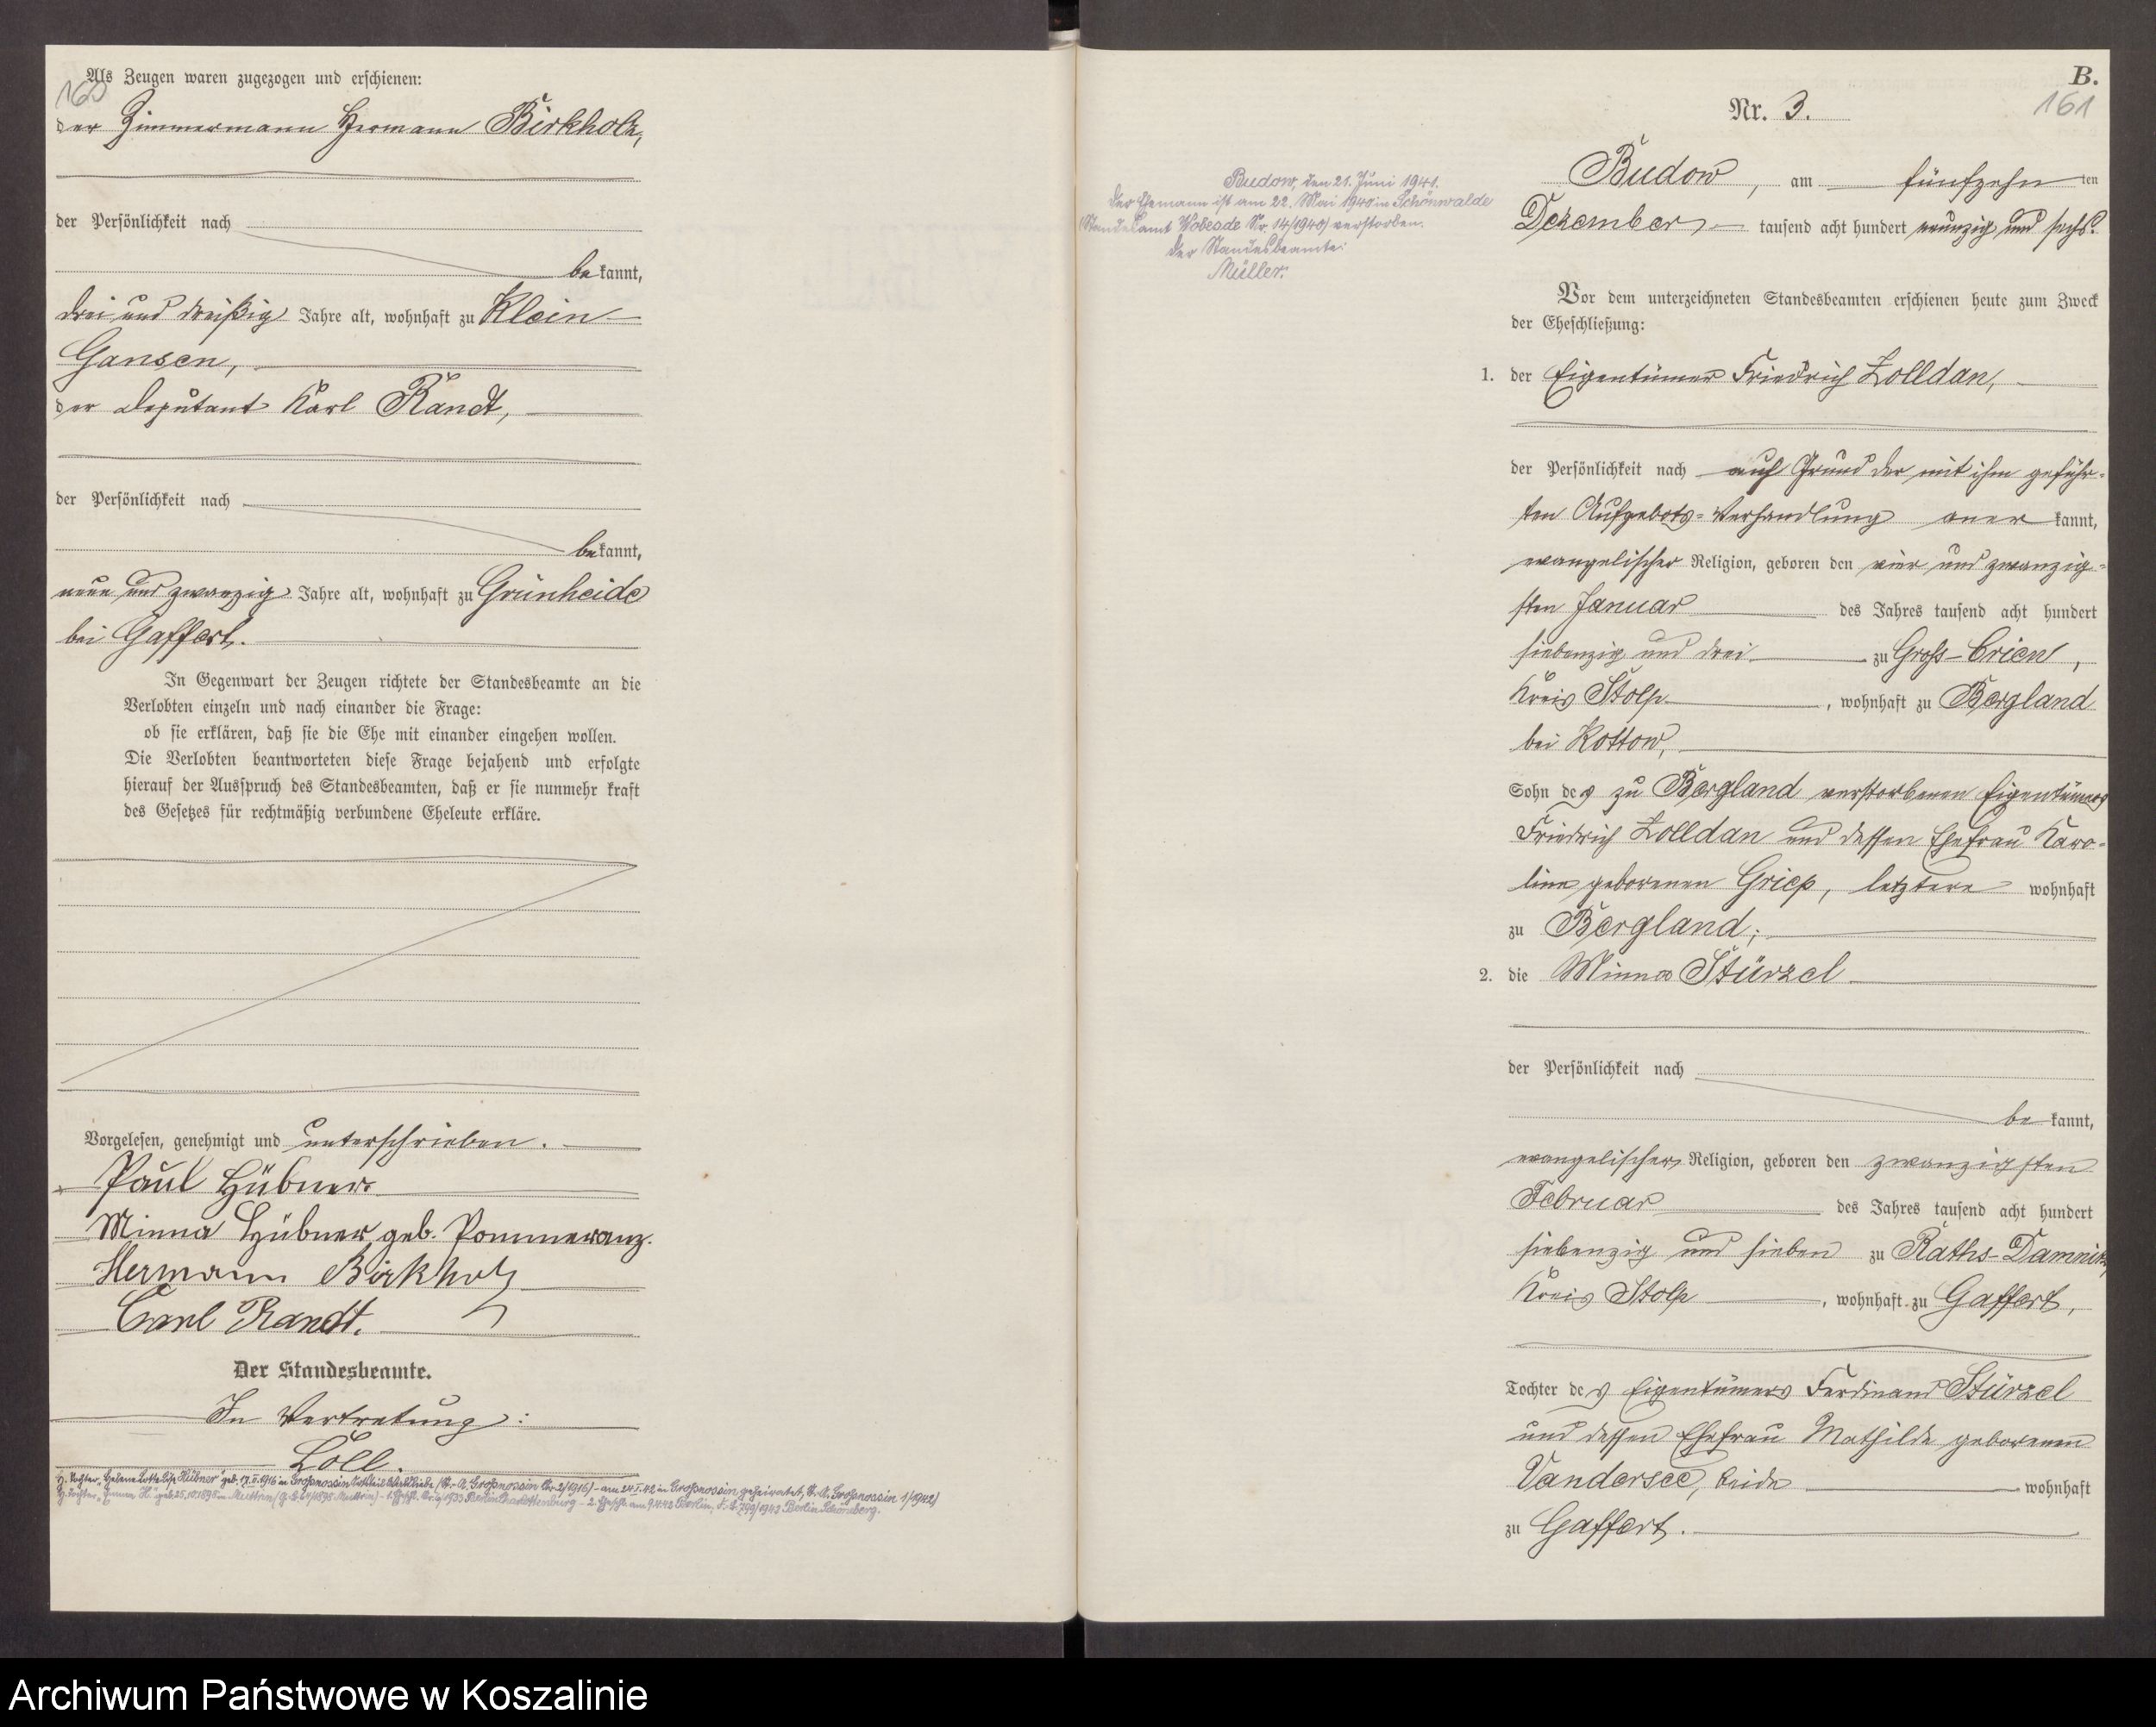 Als Zeugen waren zugezogen und erschienen:
160
der Zimmermann Hermann Birkholz,
der Persönlichkeit nach
be kannt,
drei und dreißig Jahre alt, wohnhaft zu Klein-
Gansen,
der Deputant Karl Randt,
der Persönlichkeit nach
be kannt,
neun und zwanzig Jahre alt, wohnhaft zu Grünheide
bei Gaffert.
In Gegenwart der Zeugen richtete der Standesbeamte an die
Verlobten einzeln und nach einander die Frage:
ob sie erklären, daß sie die Ehe mit einander eingehen wollen.
Die Verlobten beantworteten diese Frage bejahend und erfolgte
hierauf der Ausspruch des Standesbeamten, daß er sie nunmehr kraft
des Gesetzes für rechtmäßig verbundene Eheleute erkläre.
Vorgelesen, genehmigt und unterschrieben.
Paul Hübner
Minna Hübner geb. Pommeranz.
Hermann Birkholz
Carl Randt.
Der Standesbeamte.
In Vertretung:
Löll.
H. Tochter "Helene Lotte Hübner" geb. 17.II.1916 in Großnossin (St.-A. Großnossin Nr. 2/1916) - am 24.I.42 in Großnossin geheiratet, St. A. Großnossin 1/1942)
H. Tochter "Emma H." geb. 25.10.1898 in Muttrin - 1. Ehesch. 1933 Berlin Charlottenburg - 2. Ehesch. am 9.4.43 Berlin, 1943 Berlin Schöneberg.
B.
161
Nr. 3.
Budow, den 21. Juni 1941.
Der Ehemann ist am 22. Mai 1940 in Schönwalde
(Standesamt Wobesde Nr. 14/1940) verstorben.
Der Standesbeamte:
Müller.
Budow, am fünfzehn ten
Dezember tausend acht hundert neunzig und sechs.
Vor dem unterzeichneten Standesbeamten erschienen heute zum Zweck
der Eheschließung:
1. der Eigentümer Friedrich Zolldan,
der Persönlichkeit nach auf Grund der mit ihm geführ-
ten Aufgebots-Verhandlung aner kannt,
evangelischer Religion, geboren den vier und zwanzig-
sten Januar des Jahres tausend acht hundert
siebenzig und drei zu Groß-Crien,
Kreis Stolp, wohnhaft zu Bergland
bei Kottow,
Sohn des zu Bergland verstorbenen Eigentümers
Friedrich Zolldan und dessen Ehefrau Karo-
line geborenen Griep, letztere wohnhaft
zu Bergland;
2. die Minna Stürzel
der Persönlichkeit nach
be kannt,
evangelischer Religion, geboren den zwanzigsten
Februar des Jahres tausend acht hundert
siebenzig und sieben zu Raths-Damnitz,
Kreis Stolp, wohnhaft zu Gaffert,
Tochter des Eigentümers Ferdinand Stürzel
und dessen Ehefrau Mathilde geborenen
Vandersee, beide wohnhaft
zu Gaffert.
Archiwum Państwowe w Koszalinie